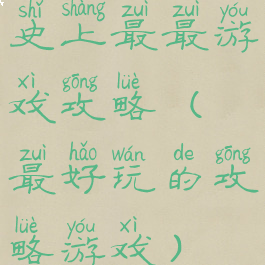 shǐ shàng zuì zuì yóu
史上最最游
xì gōng lüè
戏攻略（
zuì hǎo wán de gōng
最好玩的攻
lüè yóu xì
略游戏）